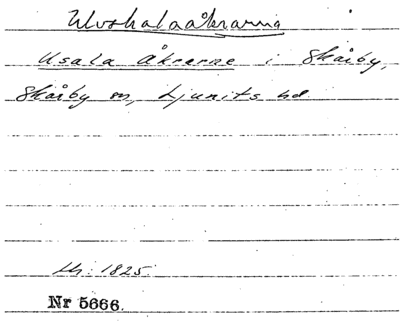 Ulvshalaåkrarna
Usala Åkrerne i Skårby,
Skårby sn, Ljunits hd.
Lh: 1825
Nr 5666.